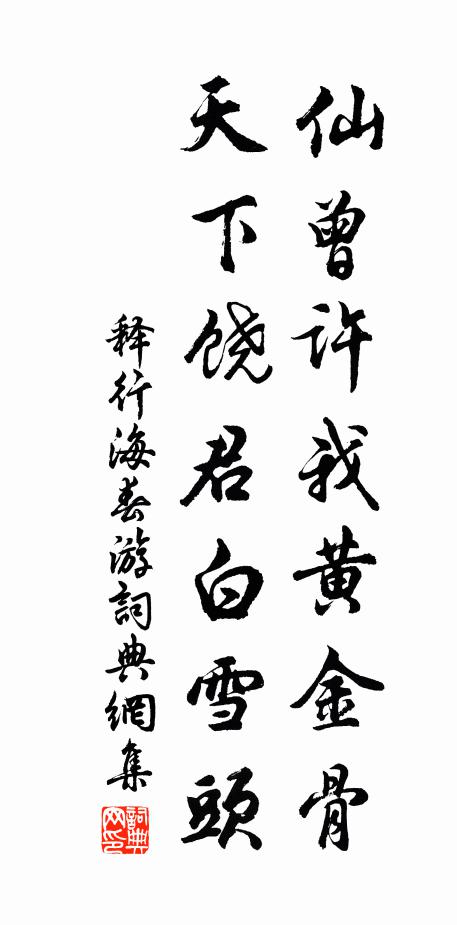 仙曾許我黄金骨
天下饒君白雪頭
释行海春游詞典網集
詞典網印